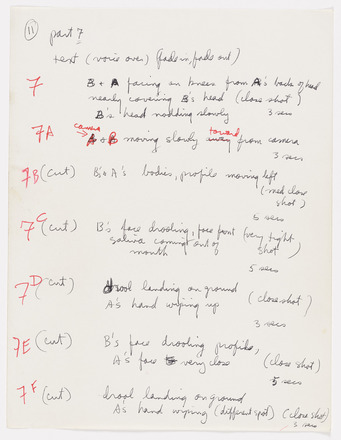 11 part 7
text (voice over) (fade in, fade out)
7 B + A facing on knees from A's back of head
nearly covering B's head (close shot)
B's head nodding slowly 3 secs
camera toward
7A A + B moving slowly away from camera
3 secs
7B (cut) B's + A's bodies, profile moving left
(med close
shot)
5 secs
7C (cut) B's face drooling, face front (very tight
saliva coming out of shot)
mouth
5 secs
7D (cut) drool landing on ground
A's hand wiping up (close shot)
3 secs
7E (cut) B's face drooling profile,
A's face very close (close shot)
5 secs
7F (cut) drool landing on ground
A's hand wiping (different spot) (close shot)
3 secs